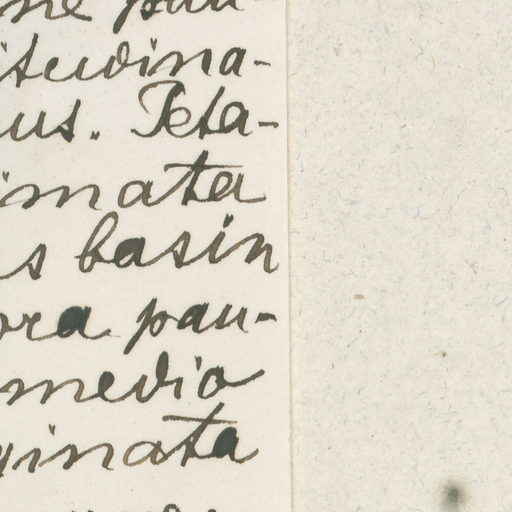 ne pau-
itudina-
us. Peta-
imata
s basin
ora pau-
medio
ginata